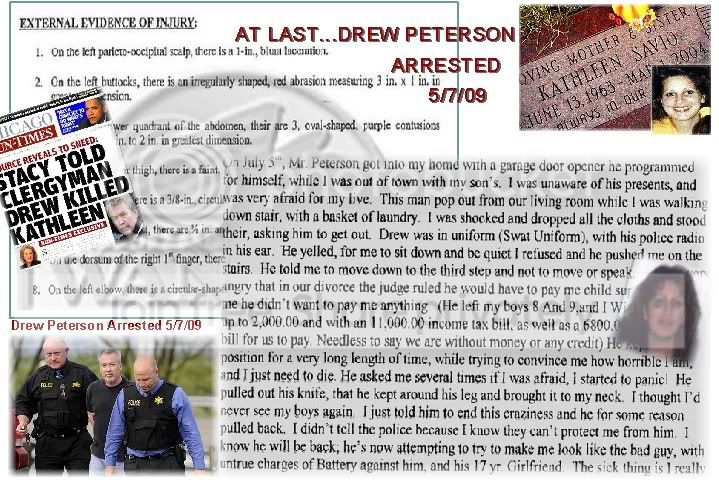 EXTERNAL EVIDENCE OF INJURY:
AT LAST...DREW PETERSON
ARRESTED
5/7/09
1. On the left parieto-occipital scalp, there is a 1-in., blunt laceration.
2. On the left buttocks, there is an irregularly shaped, red abrasion measuring 3 in. x 1 in. in
quadrant of the abdomen, their are 3, oval-shaped, purple contusions
in. to 2 in. in greatest dimension.
thigh, there is a faint,
ere is a 3/8-in., circul
, there are ½ in. an
on the dorsum of the right 1st finger, there
8. On the left elbow, there is a circular-shap
CHICAGO
SUN-TIMES
SOURCE REVEALS TO SNEED:
STACY TOLD
CLERGYMAN
DREW KILLED
KATHLEEN
SUN-TIMES EXCLUSIVE
LOVING MOTHER SISTER
KATHLEEN SAVIO
JUNE 13, 1963 MA 2004
ALWAYS IN OUR
On July 5th, Mr. Peterson got into my home with a garage door opener he programmed
for himself, while I was out of town with my son's. I was unaware of his presents, and
was very afraid for my live. This man pop out from our living room while I was walking
down stair, with a basket of laundry. I was shocked and dropped all the cloths and stood
their, asking him to get out. Drew was in uniform (Swat Uniform), with his police radio
in his ear. He yelled, for me to sit down and be quiet I refused and he pushed me on the
stairs. He told me to move down to the third step and not to move or speak.
angry that in our divorce the judge ruled he would have to pay me child su
me he didn't want to pay me anything (He left my boys 8 And 9,and I Wi
up to 2,000.00 and with an 11,000.00 income tax bill, as well as a 6800.0
bill for us to pay. Needless to say we are without money or any credit) He kept
position for a very long length of time, while trying to convince me how horrible I am,
and I just need to die. He asked me several times if I was afraid, I started to panic! He
pulled out his knife, that he kept around his leg and brought it to my neck. I thought I'd
never see my boys again. I just told him to end this craziness and he for some reason
pulled back. I didn't tell the police because I know they can't protect me from him. I
know he will be back; he's now attempting to try to make me look like the bad guy, with
untrue charges of Battery against him, and his 17 yr. Girlfriend. The sick thing is I really
Drew Peterson Arrested 5/7/09
POLICE
POLICE